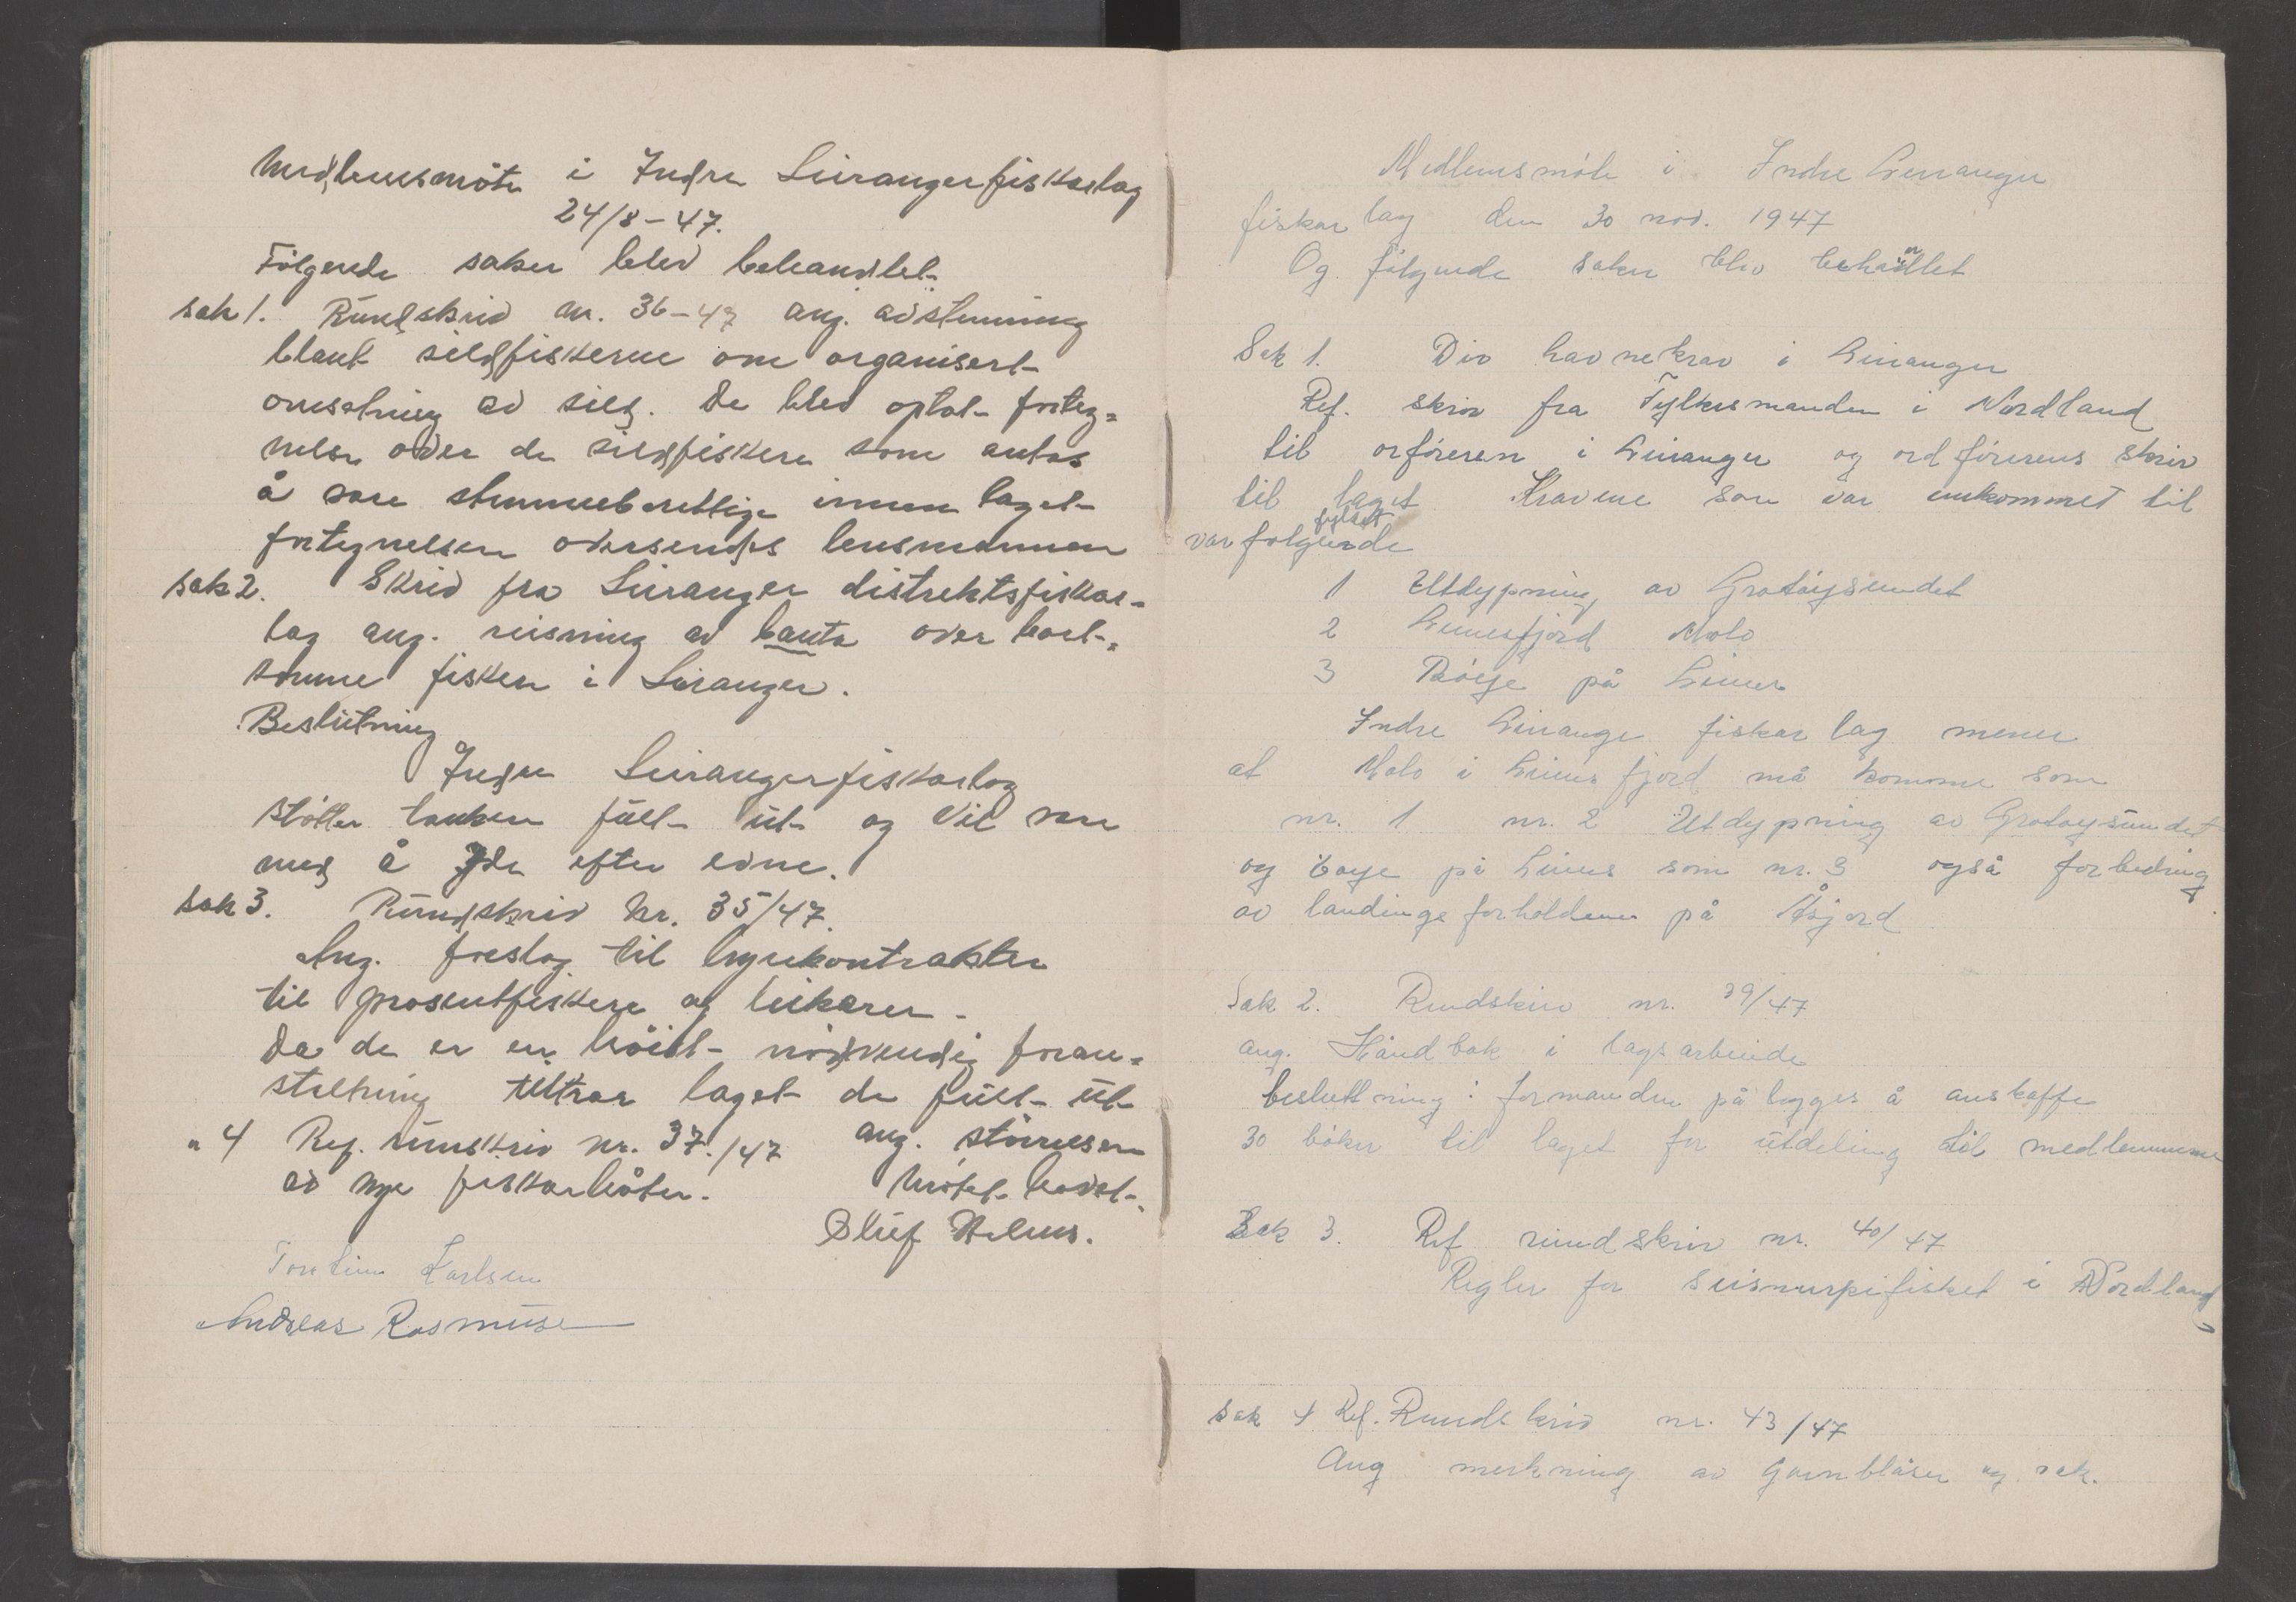 Medlemsmöte i Indre Leirangerfiskarlag
24/8-47.
Fölgende saker blev behandlet.
sak 1. Rundskriv nr. 36-47 ang. avstemning
blant sildfiskerne om organisert
omsetning av sild. De blev optat forteg=
nelse over de sildfiskere som antas
å vere stemmeberettige innen laget
fortegnelsen oversendes lensmannen
sak 2. Skriv fra Leiranger distrektsfiskar-
lag ang. reisning av bauta over bort-
komne fisker i Leiranger.
Beslutning
Indre Leirangerfiskarlag
stötter tanken fult ut og vil vere
med å yde efter evne.
sak 3. Rundskriv Nr. 35/47.
Ang. foreslag til hyrekontrakter
til prosentfiskere og leikarer.
Da de er en höist nödvendig foran=
staltning tiltrer laget de fult ut
" 4 Ref. runskriv nr. 37./47 ang. störrelsen
av nye fiskarbåter. Mötet hevet.
Oluf Helms.
Karlsen
Andreas Rasmuse
Medlemsmöte i Indre Leiranger
fiskar lag den 30 nov. 1947
Og fölgende saker blev behandlet
Sak 1. Div havnekrav i Leiranger
Ref. skriv fra Fylkesmanden i Nordland
til orföreren i Leiranger og ordförerens skriv
til laget Kravene som var innkommet til
fylket
var fölgende
1 Utdypning av Grotöysundet
2 Leinesfjord Molo
3 Böige på Leines
Indre Leirange fiskar lag mener
at Molo i Leines fjord må komme som
nr. 1 nr. 2 Utdypning av Grotöysundet
og böye på Leines som nr. 3 også forbedring
av landingsforholdene på Åsjord
Sak 2. Rundskriv nr. 39/47
ang. Håndbok i lagsarbeide
besluttning: formanden pålegges å anskaffe
30 böker til laget for utdeling til medlemmene
Sak 3. Ref rundskriv nr. 40/47
Regler for seisnurpefisket i Nordland
Sak 4 Ref. Rundskriv nr. 43/47
Ang merkning av Garnblåser og